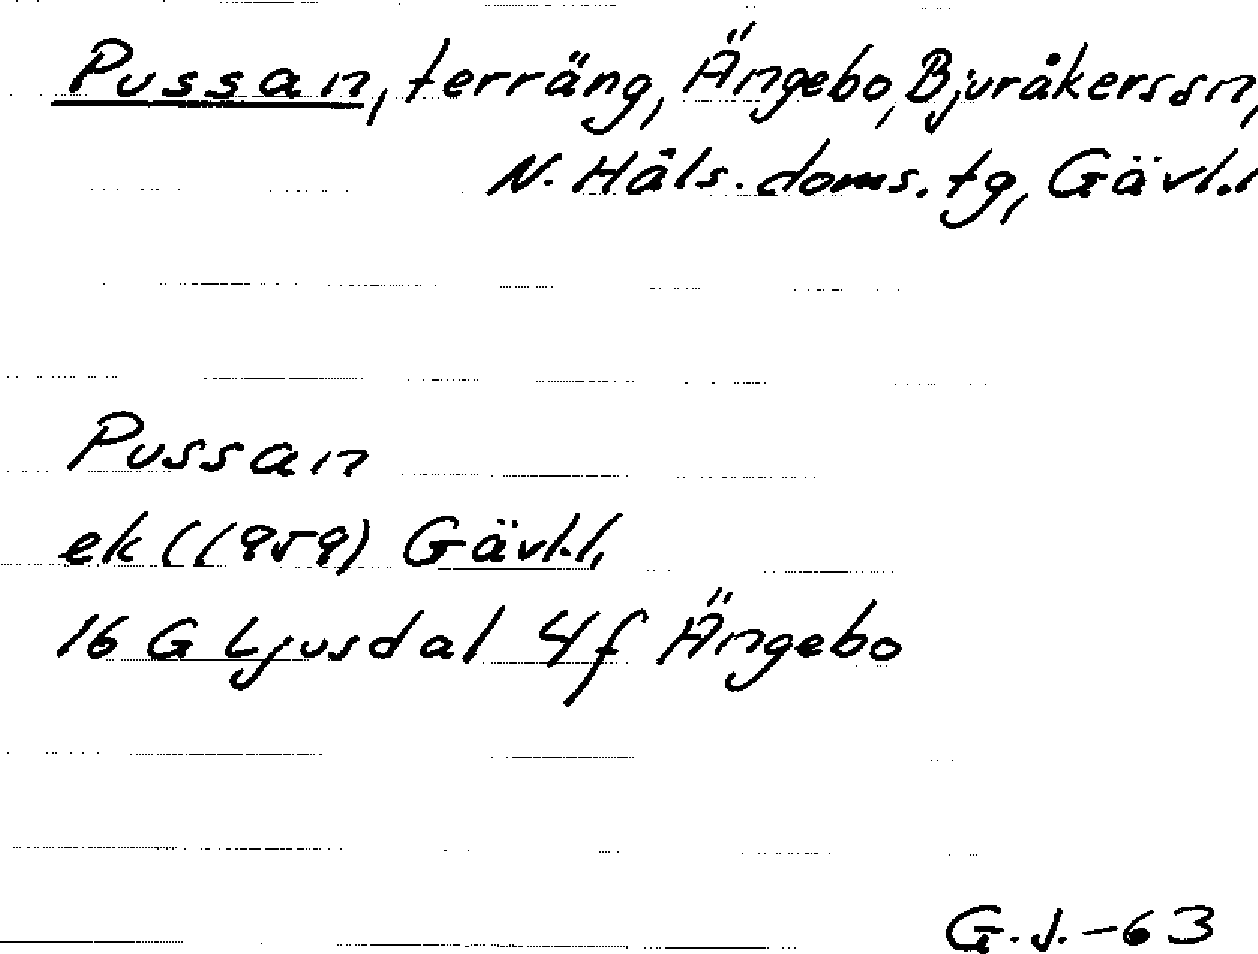 Pussan, terräng, Ängebo, Bjuråkers sn,
N. Häls. doms. tg, Gävl.l
Pussan
ek (1959) Gävl.l.
16 G Ljusdal 4f Ängebo
G.J.-63